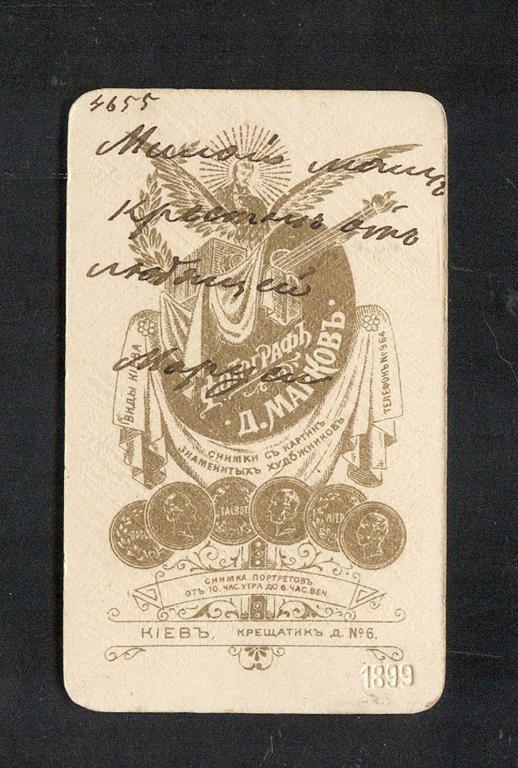 4655
Милой моей
крестной отъ
любящей
Маруси
Фотографъ
Д. Марковъ.
Виды Кіева
Телефонъ № 964
Снимки съ картинъ
знаменитыхъ художниковъ
TALBOT
NIEPCE
СНИМКА ПОРТРЕТОВЪ
ОТЪ 10. ЧАС. УТРА ДО 6. ЧАС. ВЕЧ.
КІЕВЪ. КРЕЩАТИКЪ Д. №6.
1899